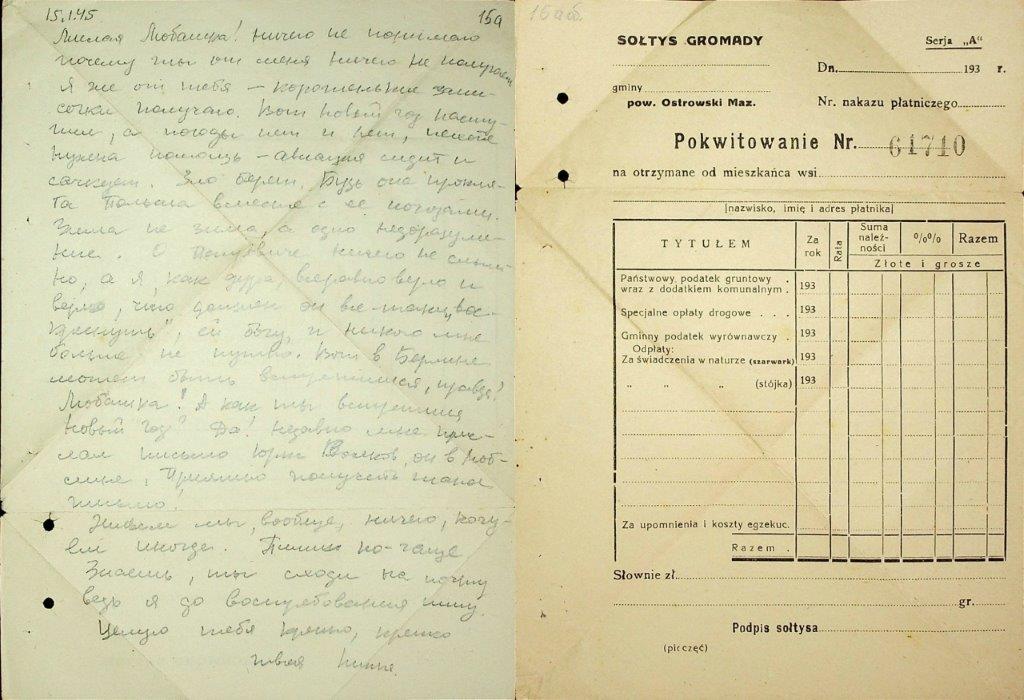 15.1.45
15а
Милая Любашка! Ничего не понимаю
почему ты от меня ничего не получаешь
Я же от тебя – коротенькие запи-
сочки получаю. Вот Новый год насту-
пил, а погоды нет и нет, пехоте
нужна помощь – авиация сидит и
сачкует. Зло берет. Будь она прокля-
та Польша вместе с ее погодами.
Зима не зима, а одно недоразуме-
ние. О ничего не слыш-
но, а я, как дура, всё равно верю и
верю, что должен он все-таки „вос-
креснуть", ей богу, и никого мне
больше не нужно. Вот в Берлине
может быть встретимся, правда?
Любашка! А как ты встретила
Новый год? Да! Недавно мне прис-
лал письмо Юрка он в
Приятно получать такое
письмо.
Живем мы, вообще, ничего,
иногда. Пиши по-чаще
Знаешь, ты сходи на почту
ведь я до востребования пишу.
Целую тебя крепко, крепко
твоя
15а об.
SOŁTYS GROMADY
Serja „A"
Dn. 193 r.
gminy
pow. Ostrowski Maz.
Nr. nakazu płatniczego
Pokwitowanie Nr. 61710
na otrzymane od mieszkańca wsi
[nazwisko, imię i adres płatnika]
TYTUŁEM
Za rok
Rata
Suma należ-ności
%%
Razem
Złote i grosze
Państwowy, podatek gruntowy
wraz z dodatkiem komunalnym . 193
Specjalne opłaty drogowe . . . 193
Gminny podatek wyrównawczy . 193
Odpłaty:
Za świadczenia w naturze (szarwark) 193
„ „ „ (stójka) 193
Za upomnienia i koszty egzekuc.
Razem .
Słownie zł.
gr.
Podpis sołtysa
(pieczęć)